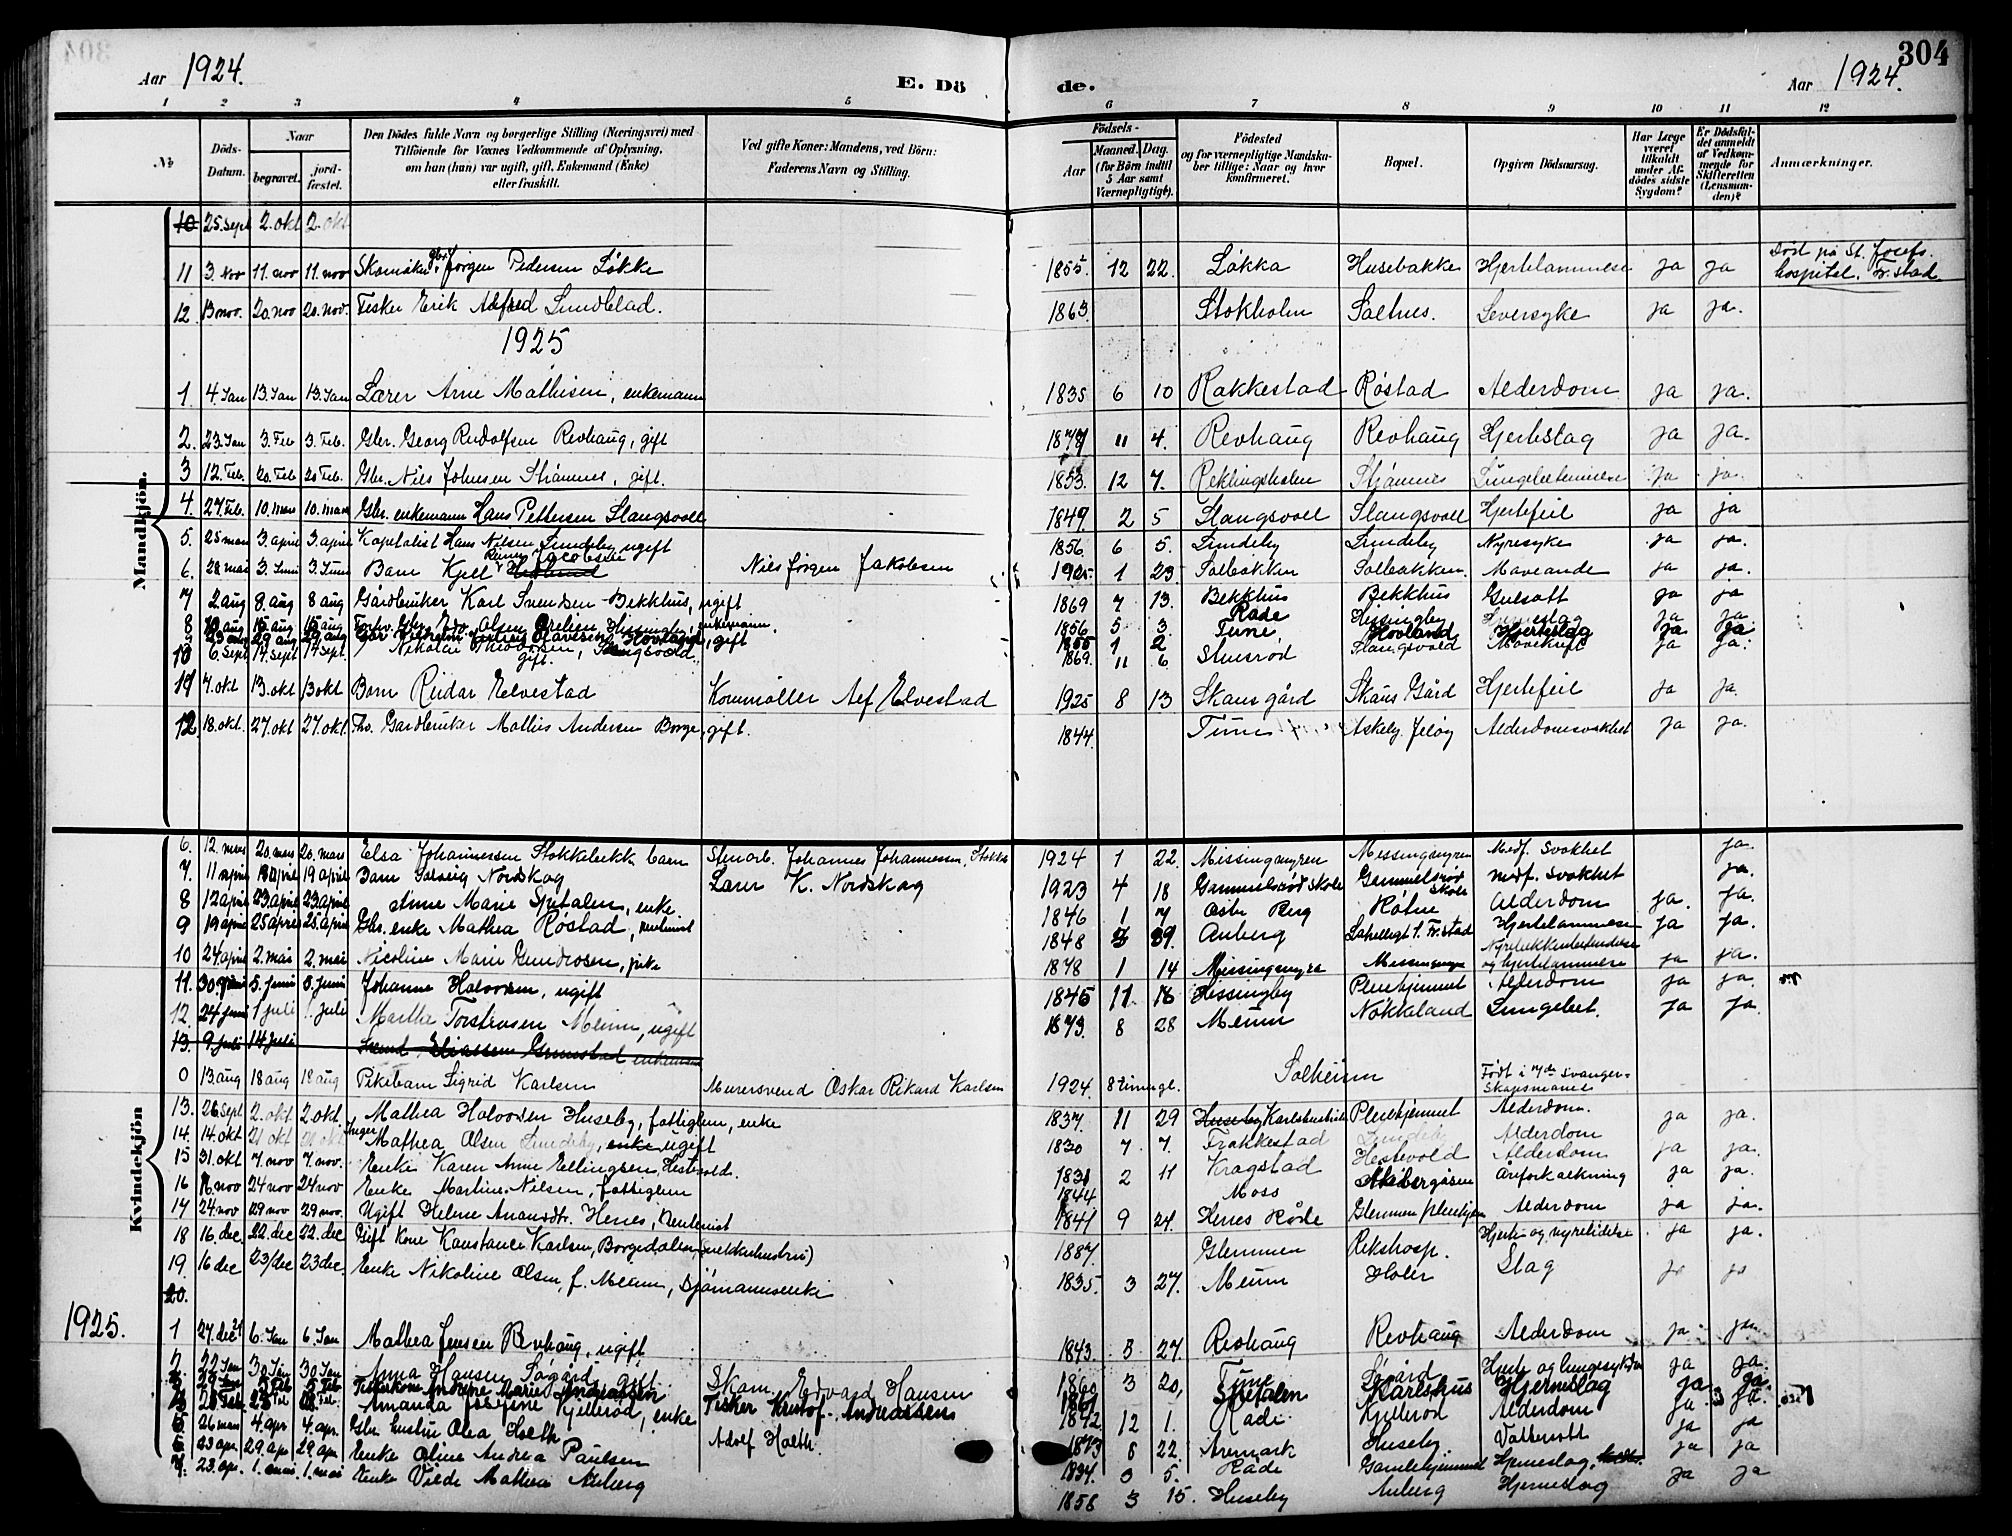 Aar 1924. E. Dö de. Aar 1924. 304
1 2 3 4 5 6 7 8 9 10 11 12
No Döds-Datum. Naar begravet. jordfæstet. Den Dödes fulde Navn og borgerlige Stilling (Næringsvei) med Tilföiende for Voxnes Vedkommende af Oplysning, om han (hun) var ugift, gift, Enkemand (Enke) eller fraskilt. Ved gifte Koner: Mandens, ved Börn: Faderens Navn og Stilling. Födsels- Aar Maaned. Dag. (for Börn indtil 5 Aar samt Værnepligtige). Födested og for værnepligtige Mandskaber tillige: Naar og hvor konfirmeret. Bopæl. Opgiven Dödsaarsag. Har Læge været tilkaldt under Afdödes sidste Sygdom? Er Dödsfaldet anmeldt af Vedkommende for Skifteretten (Lensmanden)? Anmærkninger.
Mandkjön.
10 25 sept 2. okt 2. okt
11 3. nov 11. nov 11. nov Skomaker Jörgen Pedersen Løkke 1855 12 22. Løkka Husebakke Hjertelammelse ja ja Död på St. Josefs hospital. Fr.stad
12. 13 nov. 20. nov 20. nov. Fisker Erik Alfred Lundblad. 1863. Stokholm Saltnes. Leversyke ja ja.
1925
1. 4. Jan 13. Jan 13. Jan Lærer Arne Mathisen, enkemann 1835 6 10 Rakkestad Røstad Alderdom ja ja.
2. 23. Jan 3. Feb 3. Feb. Gbr. Georg Rudolfsen Revhaug, gift 1877 11 4. Revhaug Revhaug Hjerteslag ja ja.
3 12. Feb. 20. Feb 20 Feb. Gbr. Nils Johnsen Strømnes, gift. 1853. 12 7. Strømnes ja ja.
4. 27. Feb. 10. mars 10. mars Gbr. enkemann Hans Pettersen Slangsvoll 1849 2 5 Slangsvoll Slangsvoll Hjertefeil ja ja
5. 25 mars 3. april 3. april Kapitalist Hans Nilsen Lundeby ugift 1856 6 5. Lundeby Lundeby Nyresyke ja ja.
6. 28 mai 3. Juni 3. Juni Barn Kjell Reiner Jacobsen Nils Jørgen Jakobsen 1925 1 23. Solbakken Solbakken. ja ja.
7 2 aug 8. aug 8 aug Gårdbruker Karl Svendsen Bekkhus, ugift 1869 7 13. Bekkhus Bekkhus Gulsott ja ja
8 10 aug 15 aug 15 aug Forhv. Gbr. Edv. Olsen Hissingby, enkemann. 1856 5 3. Råde Hissingby ja ja
9 23 aug 29 aug 29 aug Hovland, gift 1855 1 2 Tune Hovland Hjerteslag ja ja
10 6. sept 14. sept 14 sept. Nikolai Theodorsen, Slangsvold. gift. 1869. 11 6 Stensrød Slangsvold Mavekreft ja ja.
11 7. okt 13. okt 13 okt Barn Reidar Elvestad Kornmøller Alf Elvestad 1925 8 13 Skans gård Skans Gård Hjertefeil ja ja.
12 18. okt. 27. okt 27. okt. Fhv. Gardbruker Mathis Andersen Borge, gift. 1844. Tune Askeby, Jeløy Alderdomssvakhet ja ja
Kvindekjön
6. 12. mars 20. mars 20. mars Elsa Johannessen Stokkebekk barn Stenarb. Johannes Johannessen, 1924 1 22. Missingmyren Missingmyren Medf. Svakhet ja.
7. 11 april 19 april 19 april Barn Solveig Nordskog Lærer K. Nordskog 1923 4 18 Gammelsrød skole Gammelsrød skole Medf. svakhet ja.
8 12 april 23. april 23. april Anne Marie Spetalen, enke 1846 1 7 Østre Berg Røtne Alderdom ja. ja.
9 19 april 25 april 25. april Gbr. enke Mathea Røstad, rentenist 1848 29. Anberg Fr.stad Hjertelammelse ja ja.
10 24. april 2. mai 2. mai Nicoline Marie Gundrosen, pike 1878 1 14 Missingmyra Missingmyra Nyrebekkenbetendelse og hjertelammelse ja ja.
11. 30 5. juni 5. juni Johanne Halvorsen, ugift 1845 11 18 Hissingby Pleiehjemmet Alderdom ja ja.
12. 24 juni 1 juli 1. juli Marthe Torstensen Meum, ugift 1873. 8 28 Meum Nøkkeland Lungebet. ja ja.
13. 9. juli 14 juli Svend Eliassen Grimstad enkemann
0 13. aug 18 aug 18 aug Pikebarn Sigrid Karlsen Murersvend Oskar Rikard Karlsen 1924 8 time gl. Solheim Født i 7de Svangerskapsmåned
13. 26. sept 2. okt. 2. okt. Mathea Halvorsen Huseby, fattiglem, enke 1837. 11 29 Huseby Pleiehjemmet Alderdom. ja ja.
14. 14. okt 21 okt 21 okt Inger Mathea Olsen Lundeby, enke ugift 1830 7 7. Trøkkestad Lundeby Alderdom ja ja.
15 31. okt 7. nov 7. nov. Enke Karen Anne Ellingsen, Hestevold. 1831 2 11 Kragstad Hestevold Alderdom
16 nov 24 nov 24 nov Enke Martine Nilsen, fattiglem 1844 Moss Åreforkalkning ja ja.
17 24. nov 29 nov 29 nov. Ugift Helene Anansdtr. Henes, Rentenist 1841 9 24. Henes Råde Glemmen pleiehjem Alderdom ja ja.
18 16 dec 22. dec 22. dec Gift Kone Konstance Karlsen, Borgedalen 1887. Glemmen Rikshosp. Hjerte og nyrelidelse ja ja.
19 16 dec 23/dec 23 dec. Enke Nikoline Olsen, f. Meum, Sjømannsenke 1835 3 27. Meum Holer Slag ja ja
20.
1925.
1 27. dec 24 6. Jan 6. Jan Mathea Jensen Revhaug, ugift 1843. 3 27. Revhaug Revhaug Alderdom ja ja.
2. 22. Jan 30 Jan 30. Jan Anna Hansen Søgård, gift Skom. Edvard Hansen 1860 3 20, Tune Søgård Hjerte og lungesykdom ja ja.
Fiskerkone Andrine Marie Andreassen Fisker Kristof. Andreassen Spetalen Karlshus Hjerneslag ja ja.
Amanda Josefine Kjellerød, enke 1842 12 1. Råde Kjellerød Alderdom ja ja
26 mars 4. apr 4. apr. Gbr. hustru Olea Holth Adolf Holth. 1873 6 22 Aremark Huseby. Vattersott ja ja
6 23 apr. 29. apr 29. apr Enke Oline Andrea Paulsen 1837. 3 5. Råde Gamlehjemmet Hjerneslag ja ja
7. 23. apr. 1. mai 1. mai Enke Vilde Mathea Anberg 1858 3 15. Huseby Anberg Hjerneslag ja ja